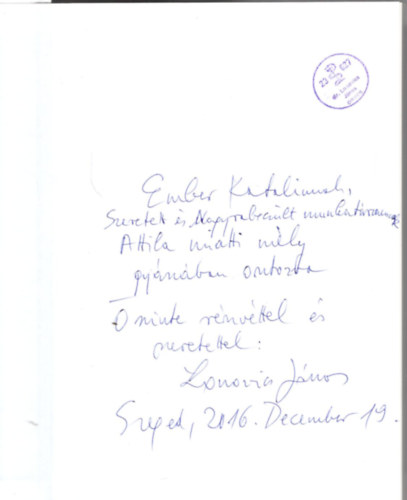 Ember Katalinnak,
Szeretett és Nagyrabecsült munkatársamnak
Attila miatti mély
gyászában osztozva
Őszinte részvéttel és
szeretettel:
Lonovics János
Szeged, 2016. December 19.